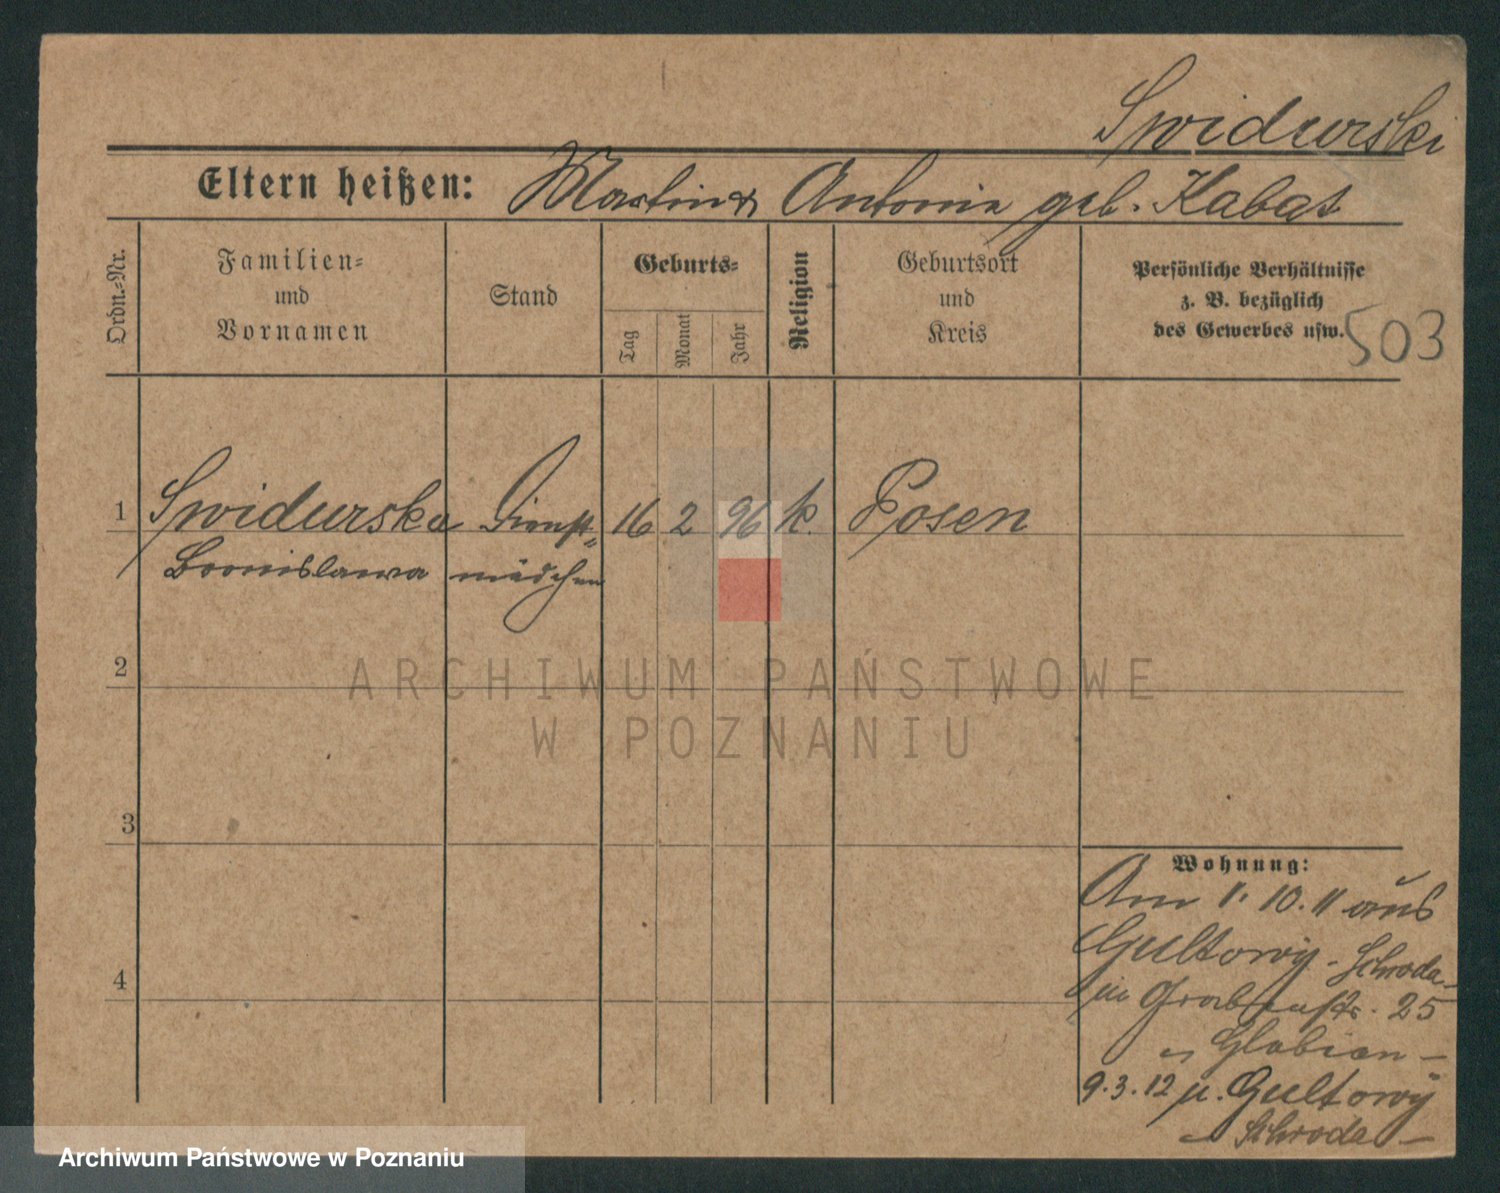 Swidurski
Eltern heißen: Martin & Antonie geb. Kabat
Ordn.-Nr.
Familien-
und
Vornamen
Stand
Geburts-
Tag
Monat
Jahr
Religion
Geburtsort
und
Kreis
Persönliche Verhältnisse
z. B. bezüglich
des Gewerbes usw.
503
1 Swidurska Dienst- 16 2 96 k. Posen
Bronislawa mädchen
2
3
4
Wohnung:
Am 1.10.11 aus
Gultowy - Schroda -
in Grabenstr. 25
Glabian -
9.3.12 n. Gultowy
- Schroda -
ARCHIWUM PAŃSTWOWE
W POZNANIU
Archiwum Państwowe w Poznaniu